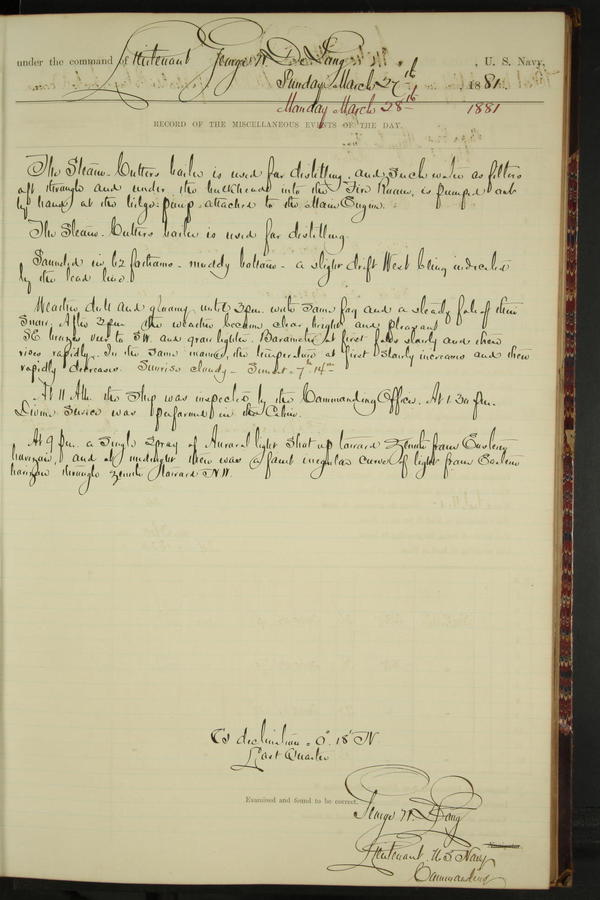 under the command of Lieutenant George W. De Long, U. S. Navy,
Sunday March 27th, 1881.
Monday March 28th 1881
RECORD OF THE MISCELLANEOUS EVENTS OF THE DAY.
The Steam-Cutters boiler is used for distilling, and such water as filters
aft through and under the bulkhead into the Fire Room, is pumped out
by hand at the bilge-pump attached to the Main Engine.
The Steam-Cutters boiler is used for distilling
Sounded in 62 fathoms - muddy bottom - a slight drift West being indicated
by the lead line.
Weather dull and gloomy until 3 pm. with some fog and a steady fall of fine
Snow. After 3 pm the weather became clear, bright and pleasant
SE breezes veer to SW. and grow lighter. Barometer at first falls slowly and then
rises rapidly. In the same manner, the temperature at first slowly increases and then
rapidly decreases. Sunrise cloudy - Sunset - 7h 14m
At 11 AM. the Ship was inspected by the Commanding Officer. At 1.30 pm.
Divine Service was performed in the Cabin.
At 9 pm. a single spray of Auroral light shot up toward Zenith from Eastern
horizon, and at midnight there was a faint irregular curve of light from Eastern
horizon through zenith toward N.W.
declination = 0° 18' N
Last Quarter
Examined and found to be correct.
George W. De Long
Navigator.
Lieutenant U.S Navy
Commanding